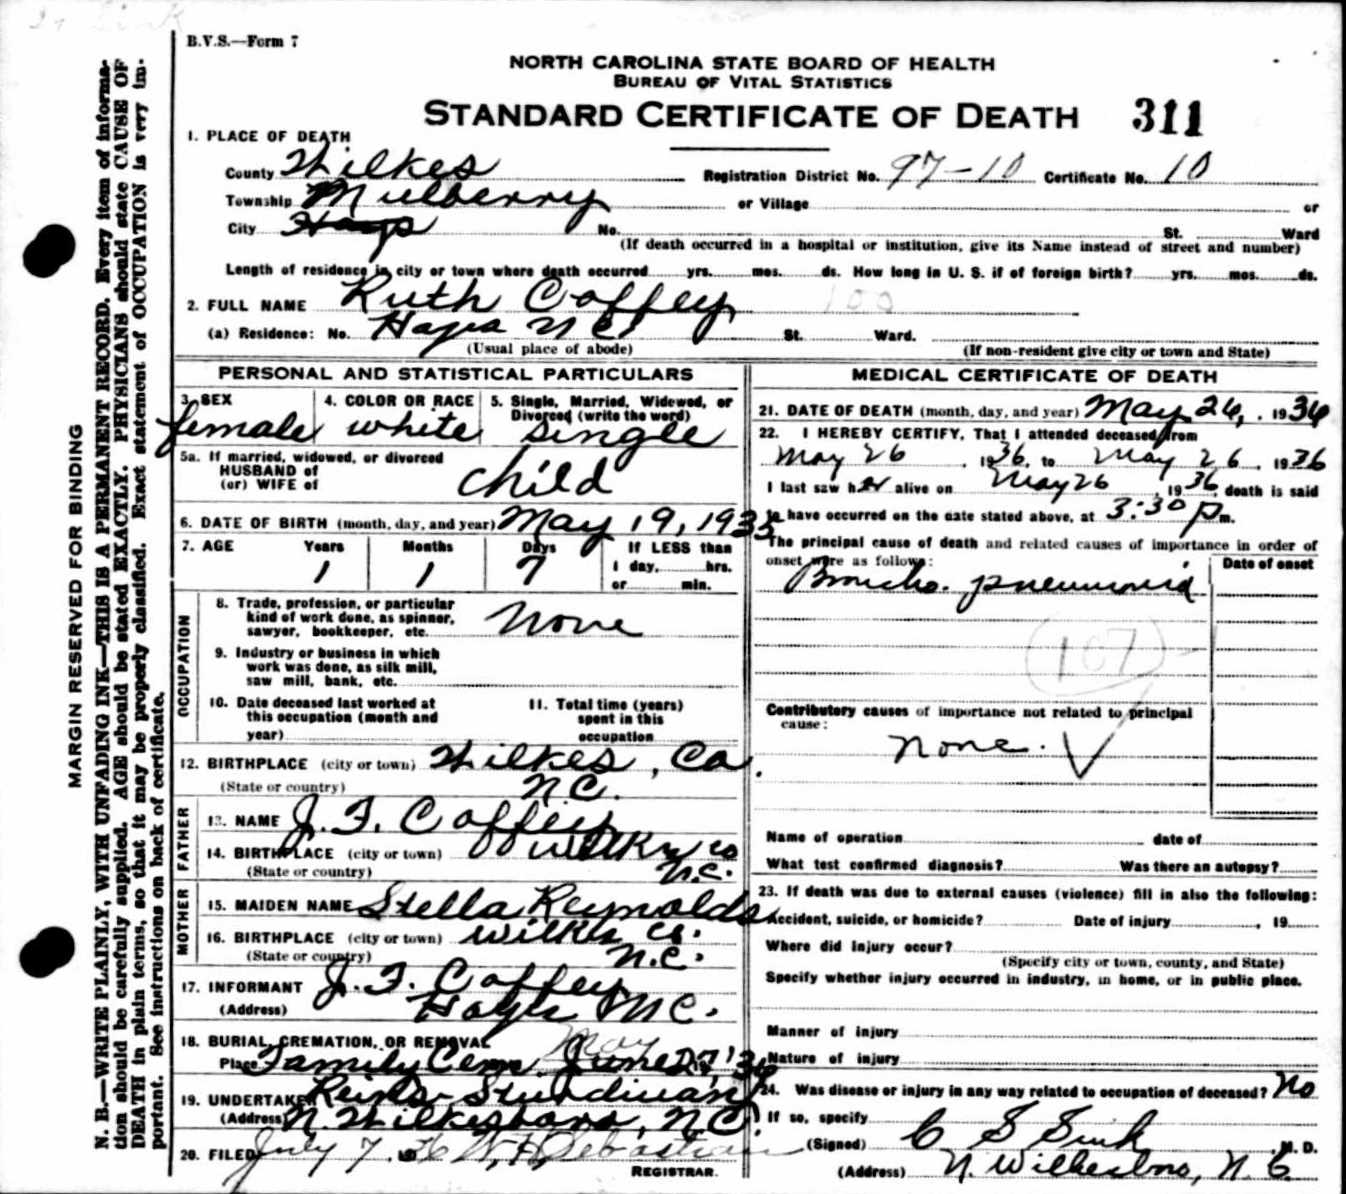 B.V.S.—Form 7
NORTH CAROLINA STATE BOARD OF HEALTH
BUREAU OF VITAL STATISTICS
STANDARD CERTIFICATE OF DEATH 311
1. PLACE OF DEATH
County Wilkes Registration District No. 97-10 Certificate No. 10
Township Mulberry or Village or
City Hays No. St. Ward
(If death occurred in a hospital or institution, give its Name instead of street and number)
Length of residence in city or town where death occurred yrs. mos. ds. How long in U. S. if of foreign birth? yrs. mos. ds.
2. FULL NAME Ruth Coffey 100
(a) Residence: No. Hays N C. St. Ward.
(Usual place of abode) (If non-resident give city or town and State)
MARGIN RESERVED FOR BINDING
N. B.—WRITE PLAINLY, WITH UNFADING INK—THIS IS A PERMANENT RECORD. Every item of informa-
tion should be carefully supplied. AGE should be stated EXACTLY. PHYSICIANS should state CAUSE OF
DEATH in plain terms, so that it may be properly classified. Exact statement of OCCUPATION is very im-
portant. See instructions on back of certificate.
PERSONAL AND STATISTICAL PARTICULARS
3. SEX 4. COLOR OR RACE 5. Single, Married, Widowed, or
Divorced (write the word)
female white single
5a. If married, widowed, or divorced
HUSBAND of
(or) WIFE of child
6. DATE OF BIRTH (month, day, and year) May 19, 1935
7. AGE Years Months Days If LESS than
1 1 7 1 day, hrs.
or min.
OCCUPATION
8. Trade, profession, or particular
kind of work done, as spinner,
sawyer, bookkeeper, etc. None
9. Industry or business in which
work was done, as silk mill,
saw mill, bank, etc.
10. Date deceased last worked at 11. Total time (years)
this occupation (month and spent in this
year) occupation
12. BIRTHPLACE (city or town) Wilkes, Co.
(State or country) N.C.
FATHER
13. NAME J. F. Coffey
14. BIRTHPLACE (city or town) Wilkes Co
(State or country) N.C.
MOTHER
15. MAIDEN NAME Stella Reynolds
16. BIRTHPLACE (city or town) Wilkes Co.
(State or country) N.C.
17. INFORMANT J. F. Coffey
(Address) Hays N C.
18. BURIAL, CREMATION, OR REMOVAL May
Place Family Cem June 27, '36
19. UNDERTAKER Reins-Sturdivant
(Address) N. Wilkesboro, N.C.
20. FILED July 7, Sebastian
REGISTRAR.
MEDICAL CERTIFICATE OF DEATH
21. DATE OF DEATH (month, day, and year) May 26, 1936
22. I HEREBY CERTIFY, That I attended deceased from
May 26, 1936, to May 26, 1936
I last saw her alive on May 26 1936, death is said
to have occurred on the date stated above, at 3:30 P.m.
The principal cause of death and related causes of importance in order of
onset were as follows: Date of onset
Broncho. pneumonia
107
Contributory causes of importance not related to principal
cause:
None. ✓
Name of operation date of
What test confirmed diagnosis? Was there an autopsy?
23. If death was due to external causes (violence) fill in also the following:
Accident, suicide, or homicide? Date of injury , 19
Where did injury occur?
(Specify city or town, county, and State)
Specify whether injury occurred in industry, in home, or in public place.
Manner of injury
Nature of injury
24. Was disease or injury in any way related to occupation of deceased? No
If so, specify
(Signed) C S Sink, M. D.
(Address) N. Wilkesboro, N. C.